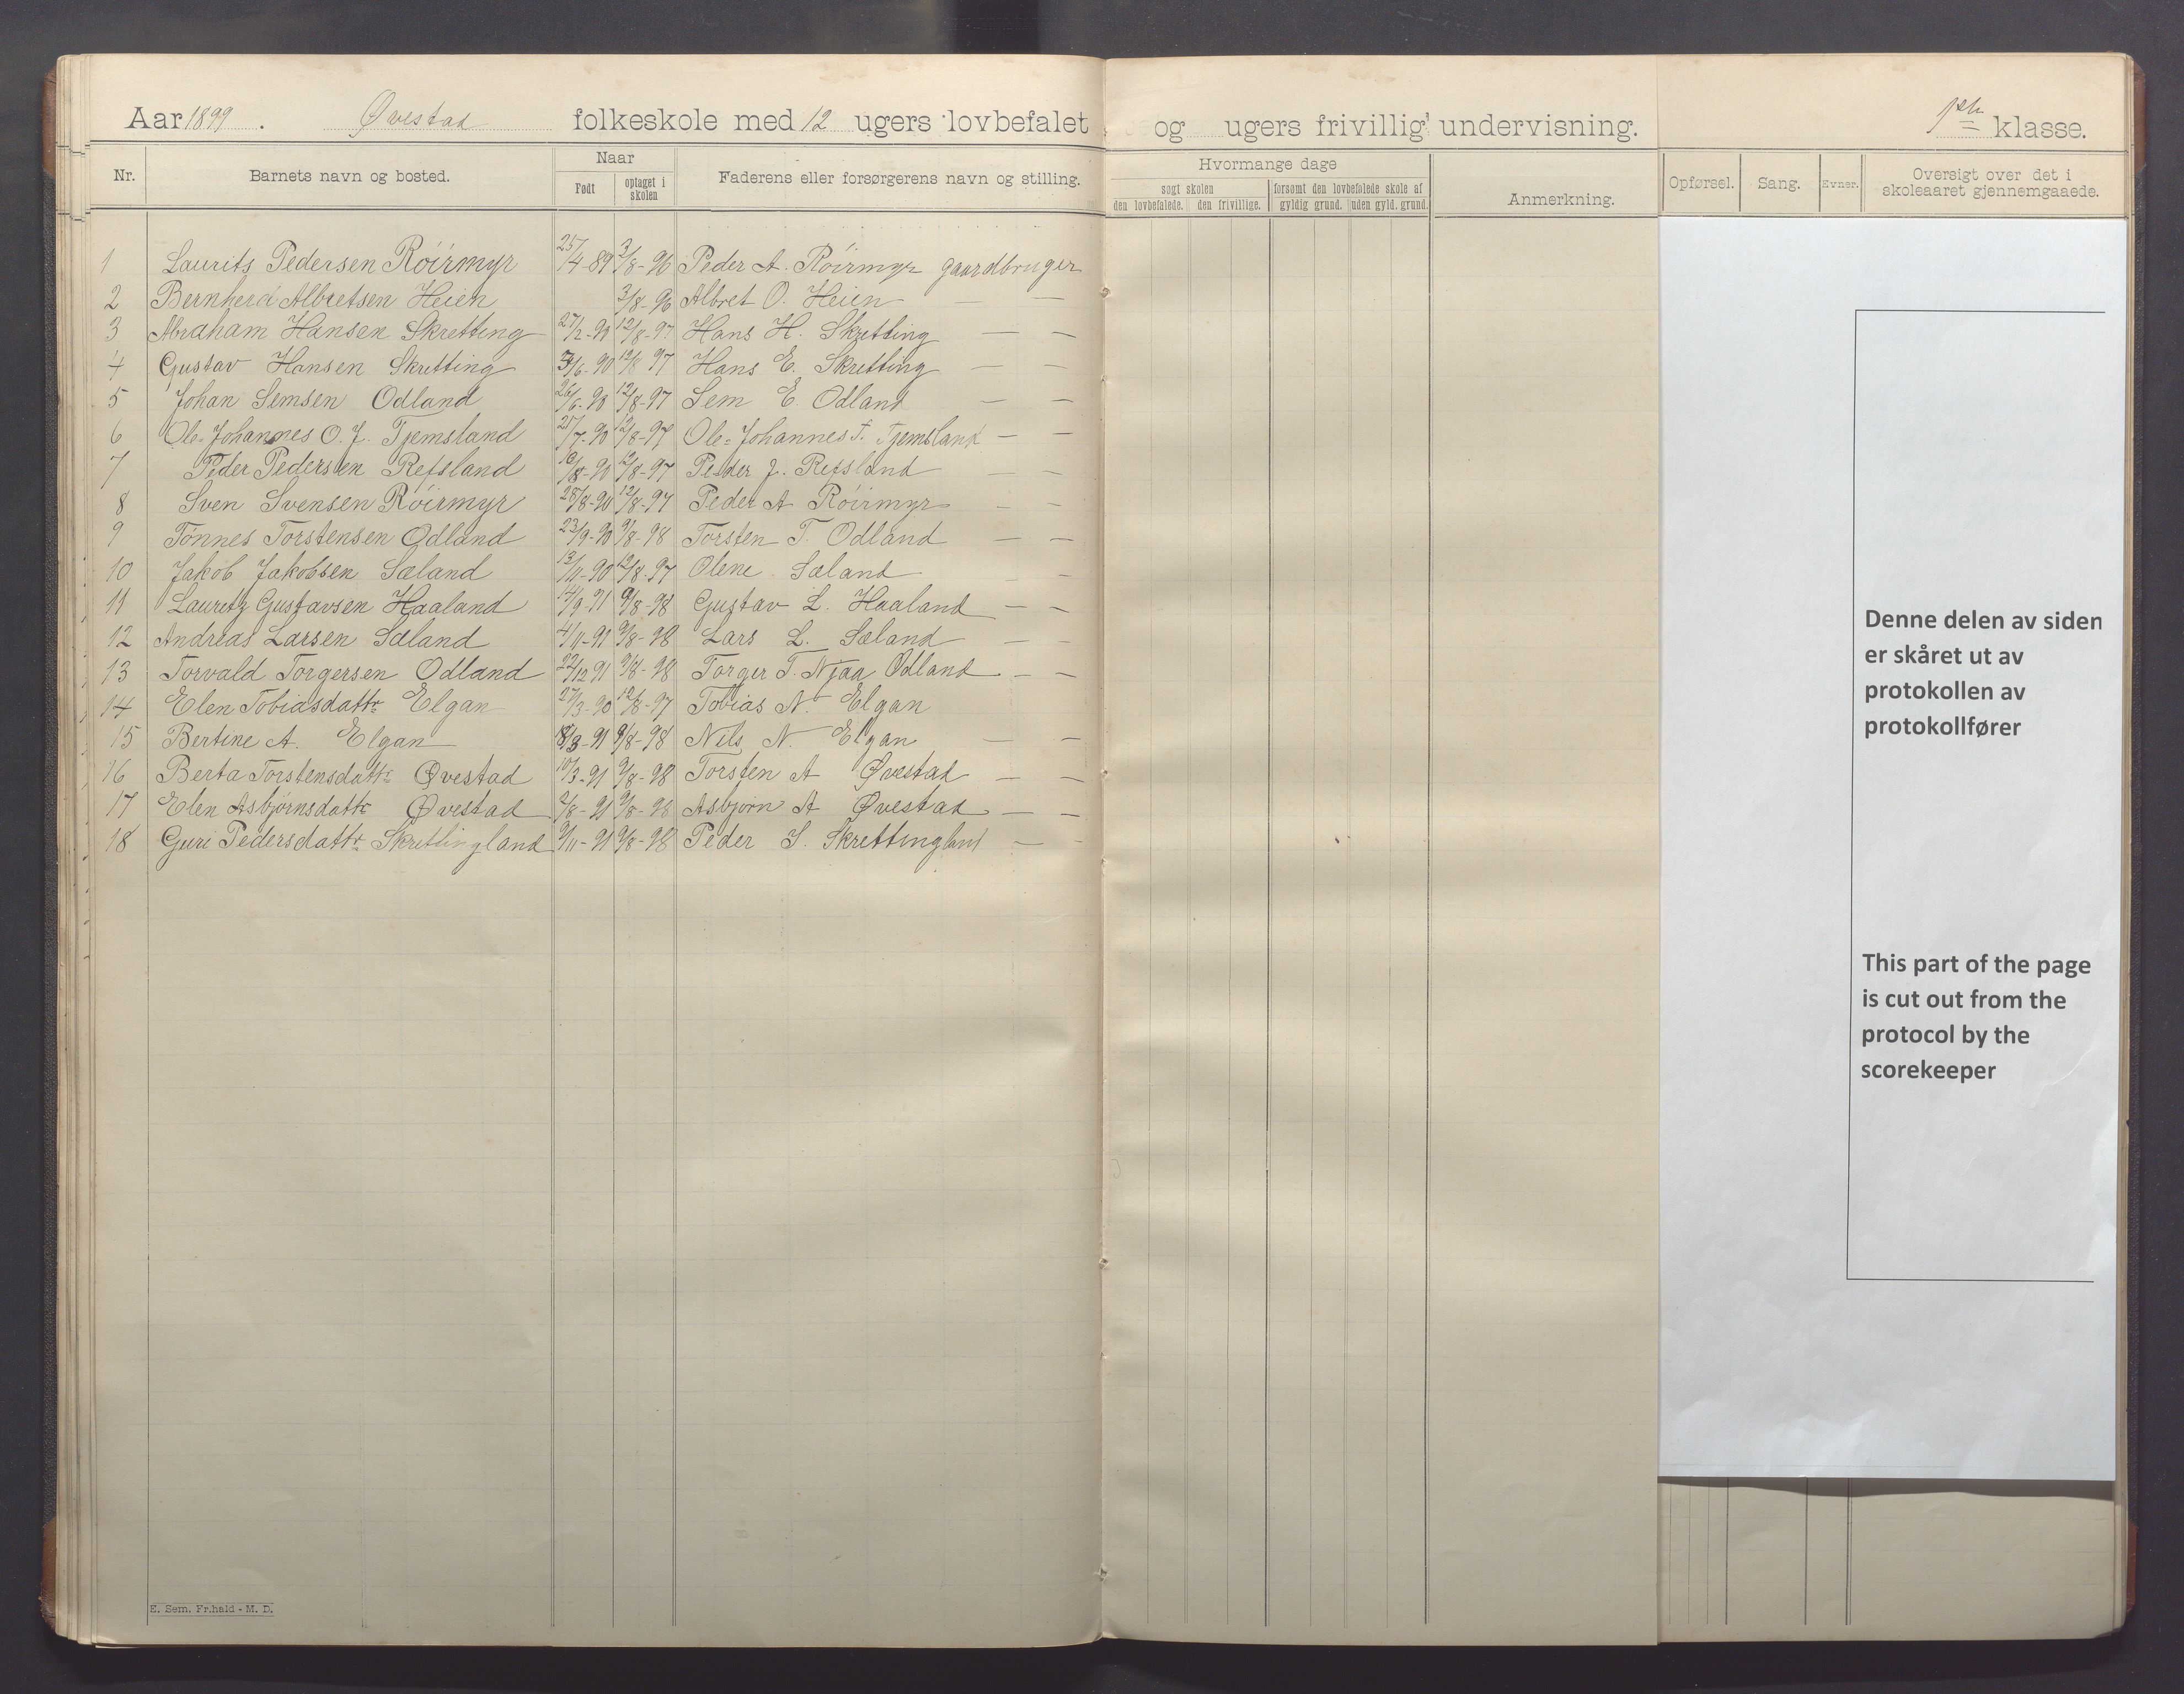 Aar 1899. Øvestad folkeskole med 12 ugers lovbefalet og ugers frivillig undervisning. 1ste klasse.
Nr. Barnets navn og bosted. Naar Født optaget i skolen Faderens eller forsørgerens navn og stilling. Hvormange dage søgt skolen den lovbefalede. den frivillige. forsømt den lovbefalede skole af gyldig grund. uden gyld. grund. Anmerkning. Opførsel. Sang. Evner. Oversigt over det i skoleaaret gjennemgaaede.
1 Laurits Pedersen Röirmyr 25/4-89 3/8-96 Peder A. Röirmyr gaardbruger
2 Bernherd Albretsen Heien 3/8-96 Albret O. Heien — —
3 Abraham Hansen Skretting 27/2-90 12/8-97 Hans H. Skretting — —
4 Gustav Hansen Skretting /6-90 12/8 97 Hans E. Skretting — —
5 Johan Semsen Odland 26/6-90 12/8-97 Sem E. Odland — —
6 Ole-Johannes O. J. Tjemsland 21/7-90 12/8-97 Ole-Johannes T. Tjemsland — —
7 Peder Pedersen Refsland 16/8-90 12/8-97 Peder J. Refsland — —
8 Sven Svensen Röirmyr 28/8-90 12/8-97 Peder A Röirmyr — —
9 Tönnes Torstensen Odland 23/9-90 9/8-98 Torsten T. Odland — —
10 Jakob Jakobsen Sæland 13/11-90 12/8-97 Olene Sæland — —
11 Lauretz Gustavsen Haaland 14/9-91 9/8-98 Gustav L. Haaland — —
12 Andreas Larsen Sæland 4/11-91 9/8-98 Lars L. Sæland — —
13 Torvald Torgersen Odland 22/12 91 9/8-98 Torger T. Njaa Odland — —
14 Elen Tobiasdattr Elgan 27/3-90 12/8-97 Tobias N. Elgan
15 Bertine A. Elgan 8/3-91 9/8-98 Nils N. Elgan — —
16 Berta Torstensdattr Øvestad 10/3-91 9/8-98 Torsten A Øvestad — —
17 Elen Asbjørnsdattr Øvestad 2/8-91 9/8-98 Asbjørn A Øvestad — —
18 Guri Pedersdattr Skrettingland 9/11-91 9/8-98 Peder S. Skrettingland — —
E. Sem. Fr.hald - M. D.
Denne delen av siden
er skåret ut av
protokollen av
protokollfører
This part of the page
is cut out from the
protocol by the
scorekeeper